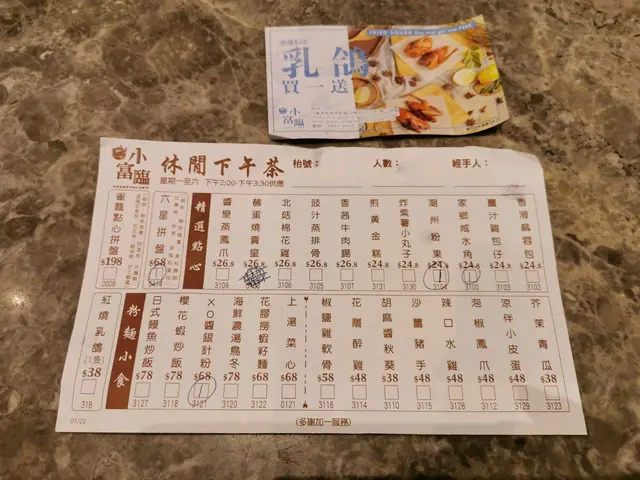 FRIED SQUAB Buy one get one FREE
乳鴿
買一送
小富臨
小富臨
休閒下午茶
星期一至六 下午2:00-下午3:30供應
枱號：
人數：
經手人：
雀籠點心拼盤 $198 0009
六星拼盤 $68 0414
精選點心
醬皇蒸鳳爪 $26.8 3109
蘸蛋燒賣皇 $26.8
北菇棉花雞 $26.8 3106
豉汁蒸排骨 $26.8 3105
香茜牛肉腸 $26.8 3107
煎黃金糕 $24.8 3131
炸紫薯小丸子 $24.8 3130
潮州粉果 $24.8 3104
家鄉咸水角 $24.8 3100
薑汁雞包仔 $24.8 3103
香滑麻蓉包 $24.8
紅燒乳鴿(1隻) $38 316
粉麵小食
日式鰻魚炒飯 $78 3127
櫻花蝦炒飯 $78 3118
XO醬銀針粉 $68 3121
海鮮濃湯烏冬 $78 3120
花膠撈蝦籽麵 $68 3122
上湯菜心 $68 0121
椒鹽雞軟骨 $58 3116
花雕醉雞 $48 3114
胡麻醬秋葵 $38 3110
沙薑豬手 $48 3115
辣口水雞 $48 3128
泡椒鳳爪 $48 3112
涼伴小皮蛋 $48 3129
芥茉青瓜 $38 3123
07/22
(多謝加一服務)